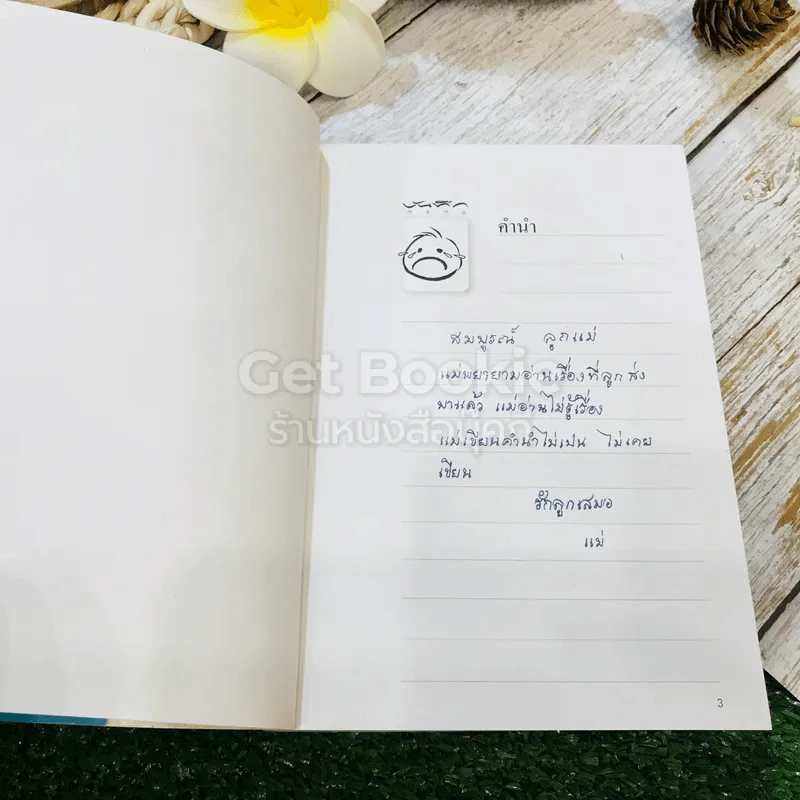 บันทึก
memo
คำนำ
สมบูรณ์ ลูกแม่
แม่พยายามอ่านเรื่องที่ลูกส่ง
มาแล้ว แม่อ่านไม่รู้เรื่อง
แม่เขียนคำนำไม่เป็น ไม่เคย
เขียน
รักลูกเสมอ
แม่
3
Get Bookie
ร้านหนังสือมุคุก